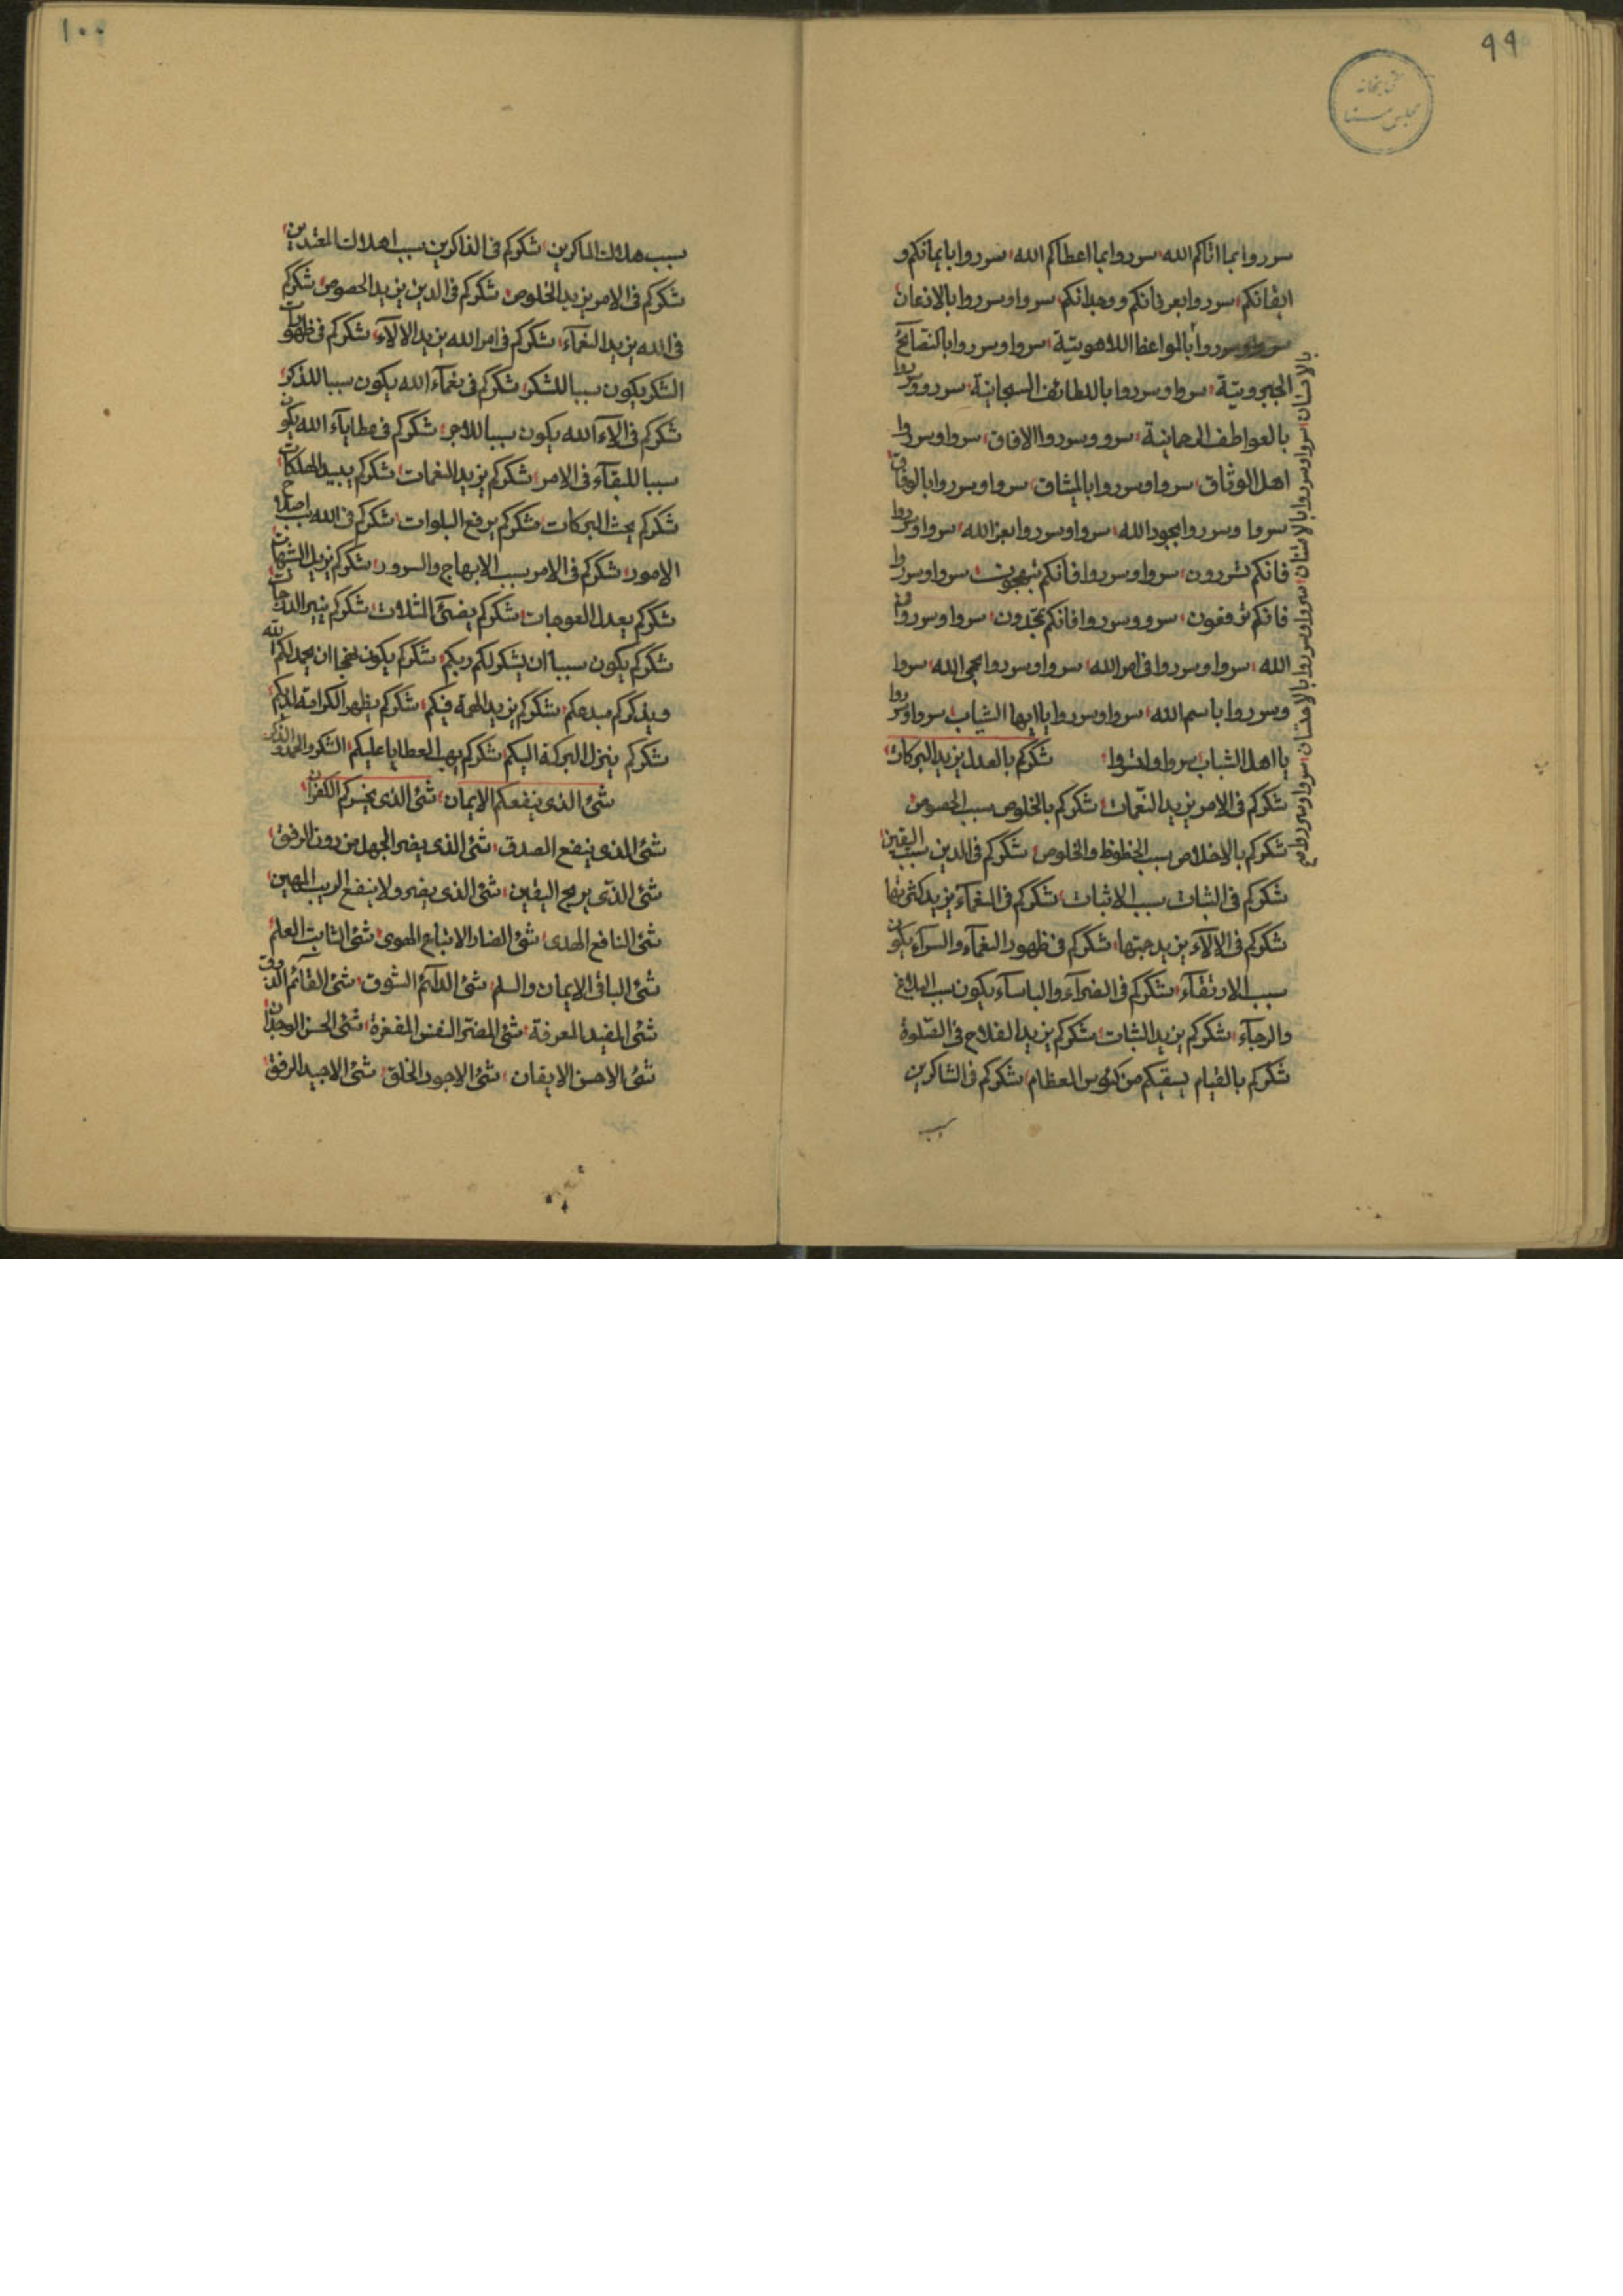 ٩٩
كتابخانه
مجلس سنا
سرروا بما اتاكم الله سرروا بما اعطاكم الله سرروا بايمانكم و
ايقانكم سرروا بعرفانكم ووجدانكم سروا وسرروا بالاذعان
سروا وسرروا بالمواعظ اللاهوتية سروا وسرروا بالنصايح
الجبروتية سروا وسرروا باللطائف السبحانية سرو وسرروا
بالعواطف الرحمانية سرو وسرروا الافاق سروا وسرروا
اهل الوثاق سروا وسرروا بالميثاق سروا وسرروا بالوفاق
سروا وسرروا بجود الله سروا وسرروا بعز الله سروا وسرروا
فانكم تسرون سروا وسرروا فانكم تبهجون سروا وسرروا
فانكم ترفعون سرو وسرروا فانكم تجدون سروا وسرروا فى
الله سروا وسرروا فى امر الله سروا وسرروا بحى الله سروا
وسرروا باسم الله سروا وسرروا يا ايها الشياب سروا وسرروا
يا اهل الشباب سروا وانسروا شكركم بالعدل يزيد البركات
شكركم فى الامر يزيد النعمات شكركم بالخلوص سبب الخصوص
شكركم بالاخلاص سبب الحظوظ والخلوص شكركم فى الدين سبب اليقين
شكركم فى الثبات سبب الاثبات شكركم فى النعمآء يزيد كثرتها
شكركم فى الالآء يزيد جبتها شكركم فى ظهور النعمآء والسرآء يكون
سبب الارتقآء شكركم فى الضرآء والباسآء يكون سبب البلاغ
والرجآء شكركم يزيد الثبات شكركم يزيد الفلاح فى الصلوة
شكركم بالقيام يسقيكم من كئوس العظام شكركم فى الشاكرين
سبب
بالاحسان سروا وسرروا بالامتنان سروا وسرروا بالاحسان سروا وسرروا
١٠٠
سبب هلاك الماكرين شكركم فى الذاكرين سبب اهلاك المعتدين
شكركم فى الامر يزيد الخلوص شكركم فى الدين يزيد الخصوص شكركم
فى الله يزيد النعمآء شكركم فى امر الله يزيد الالآء شكركم فى ظهورات
الشكر يكون سببا للشكر شكركم فى نعمآء الله يكون سببا للذكر
شكركم فى الآء الله يكون سببا للاجر شكركم فى عطايآء الله يكون
سببا للبقآء فى الامر شكركم يزيد النعمات شكركم يبيد الهلكات
شكركم يحث البركات شكركم يرفع البلوات شكركم فى الله سبب اصلاح
الامور شكركم فى الامر سبب الابهاج والسرور شكركم يزيل الشبهات
شكركم يعدل العوجات شكركم يضئ الثلاث شكركم ينير الدرجات
شكركم يكون سببا ان يشكر لكم ربكم شكركم يكون نهجا ان يحمد لكم الله
ويذكركم مبدعكم شكركم يزيد الهمة فيكم شكركم يظهر الكرامة لديكم
شكركم ينزل البركة اليكم شكركم يهب العطايا عليكم الشكر والحمد والذكر
شئ الذى ينفعكم الايمان شئ الذى يخسركم الكفران
شئ الذى ينفع الصدق شئ الذى يضر الجهل من دون الرفق
شئ الذى يربح اليقين شئ الذى يضر ولا ينفع الريب المهين
شئ النافع الهدى شئ الضار الاتباع الهوى شئ الثابت العلم
شئ الباقى الايمان والسلم شئ الدآئم الشوق شئ القآئم الذوق
شئ المفيد المعرفة شئ المضر النفس المفغرة شئ الحسن الوجدان
شئ الاحسن الايقان شئ الاجود الخلق شئ الاجيد الرفق